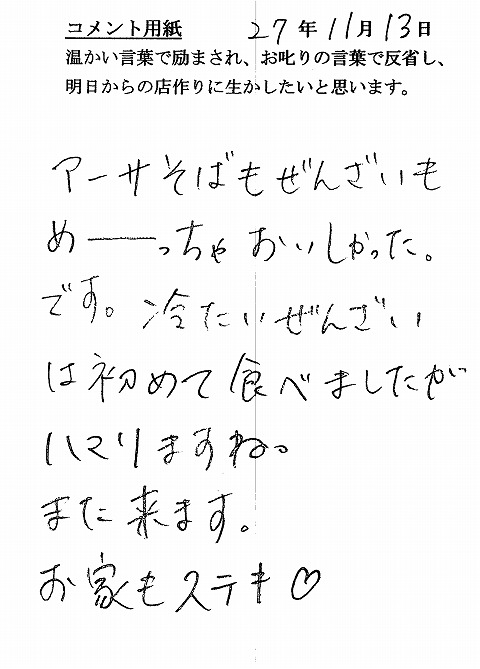 コメント用紙 27年11月13日
温かい言葉で励まされ、お叱りの言葉で反省し、
明日からの店作りに生かしたいと思います。
アーサそばもぜんざいも
めーーっちゃおいしかった。
です。冷たいぜんざい
は初めて食べましたが
ハマりますね。
また来ます。
お家もステキ♡